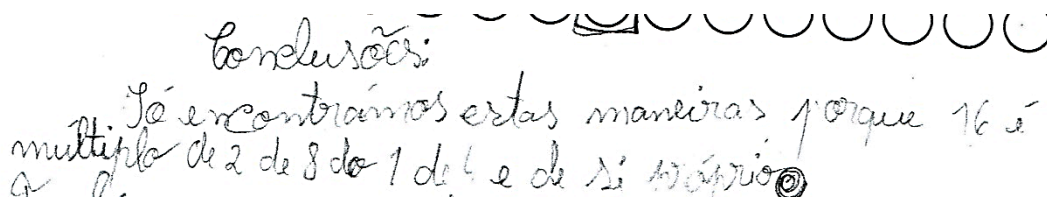 Conclusões:
Só encontrámos estas maneiras porque 16 é
múltiplo de 2 de 8 do 1 de 4 e de si próprio